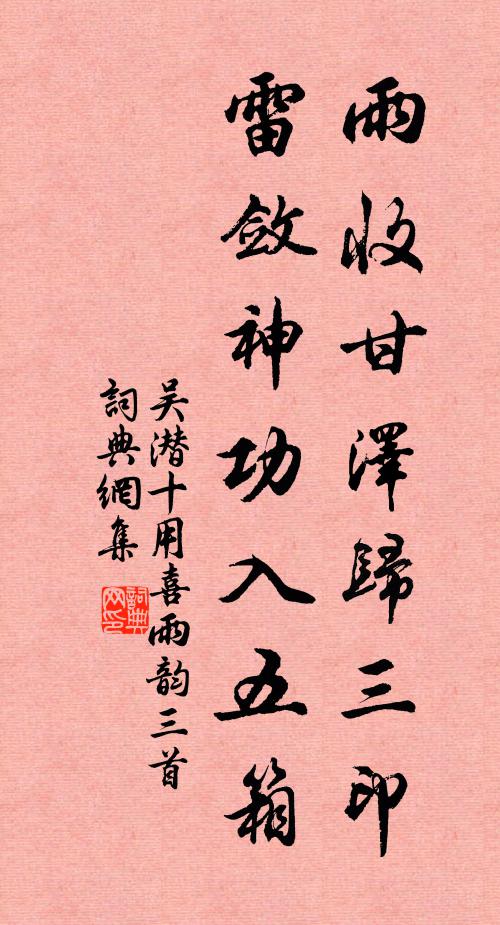 雨收甘澤歸三印
雷斂神功入五箱
吴潜十用喜雨韵三首
詞典網集
詞典網印